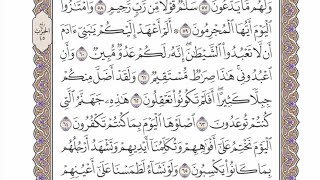 وَلَهُم مَّا يَدَّعُونَ ٥٧ سَلَٰمٌ قَوْلًا مِّن رَّبٍّ رَّحِيمٍ ٥٨ وَٱمْتَٰزُوا۟
ٱلْيَوْمَ أَيُّهَا ٱلْمُجْرِمُونَ ٥٩ ۞ أَلَمْ أَعْهَدْ إِلَيْكُمْ يَٰبَنِىٓ ءَادَمَ
أَن لَّا تَعْبُدُوا۟ ٱلشَّيْطَٰنَ إِنَّهُۥ لَكُمْ عَدُوٌّ مُّبِينٌ ٦٠ وَأَنِ
ٱعْبُدُونِى هَٰذَا صِرَٰطٌ مُّسْتَقِيمٌ ٦١ وَلَقَدْ أَضَلَّ مِنكُمْ
جِبِلًّا كَثِيرًا أَفَلَمْ تَكُونُوا۟ تَعْقِلُونَ ٦٢ هَٰذِهِۦ جَهَنَّمُ ٱلَّتِى
كُنتُمْ تُوعَدُونَ ٦٣ ٱصْلَوْهَا ٱلْيَوْمَ بِمَا كُنتُمْ تَكْفُرُونَ ٦٤
ٱلْيَوْمَ نَخْتِمُ عَلَىٰٓ أَفْوَٰهِهِمْ وَتُكَلِّمُنَآ أَيْدِيهِمْ وَتَشْهَدُ أَرْجُلُهُم
بِمَا كَانُوا۟ يَكْسِبُونَ ٦٥ وَلَوْ نَشَآءُ لَطَمَسْنَا عَلَىٰٓ أَعْيُنِهِمْ